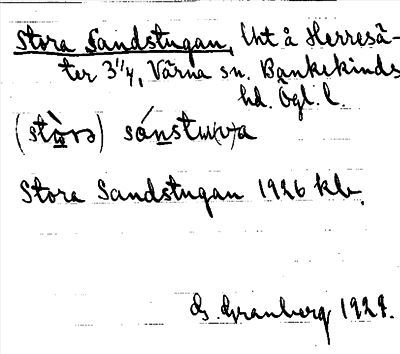 Stora Sandstugan, Uht å Herresä-
ter 3 1/4, Värna sn. Bankekinds
hd. Ögl. l.
(stωrə) sánstu(v)a
Stora Sandstugan 1926 kb.
G. Granberg 1929.